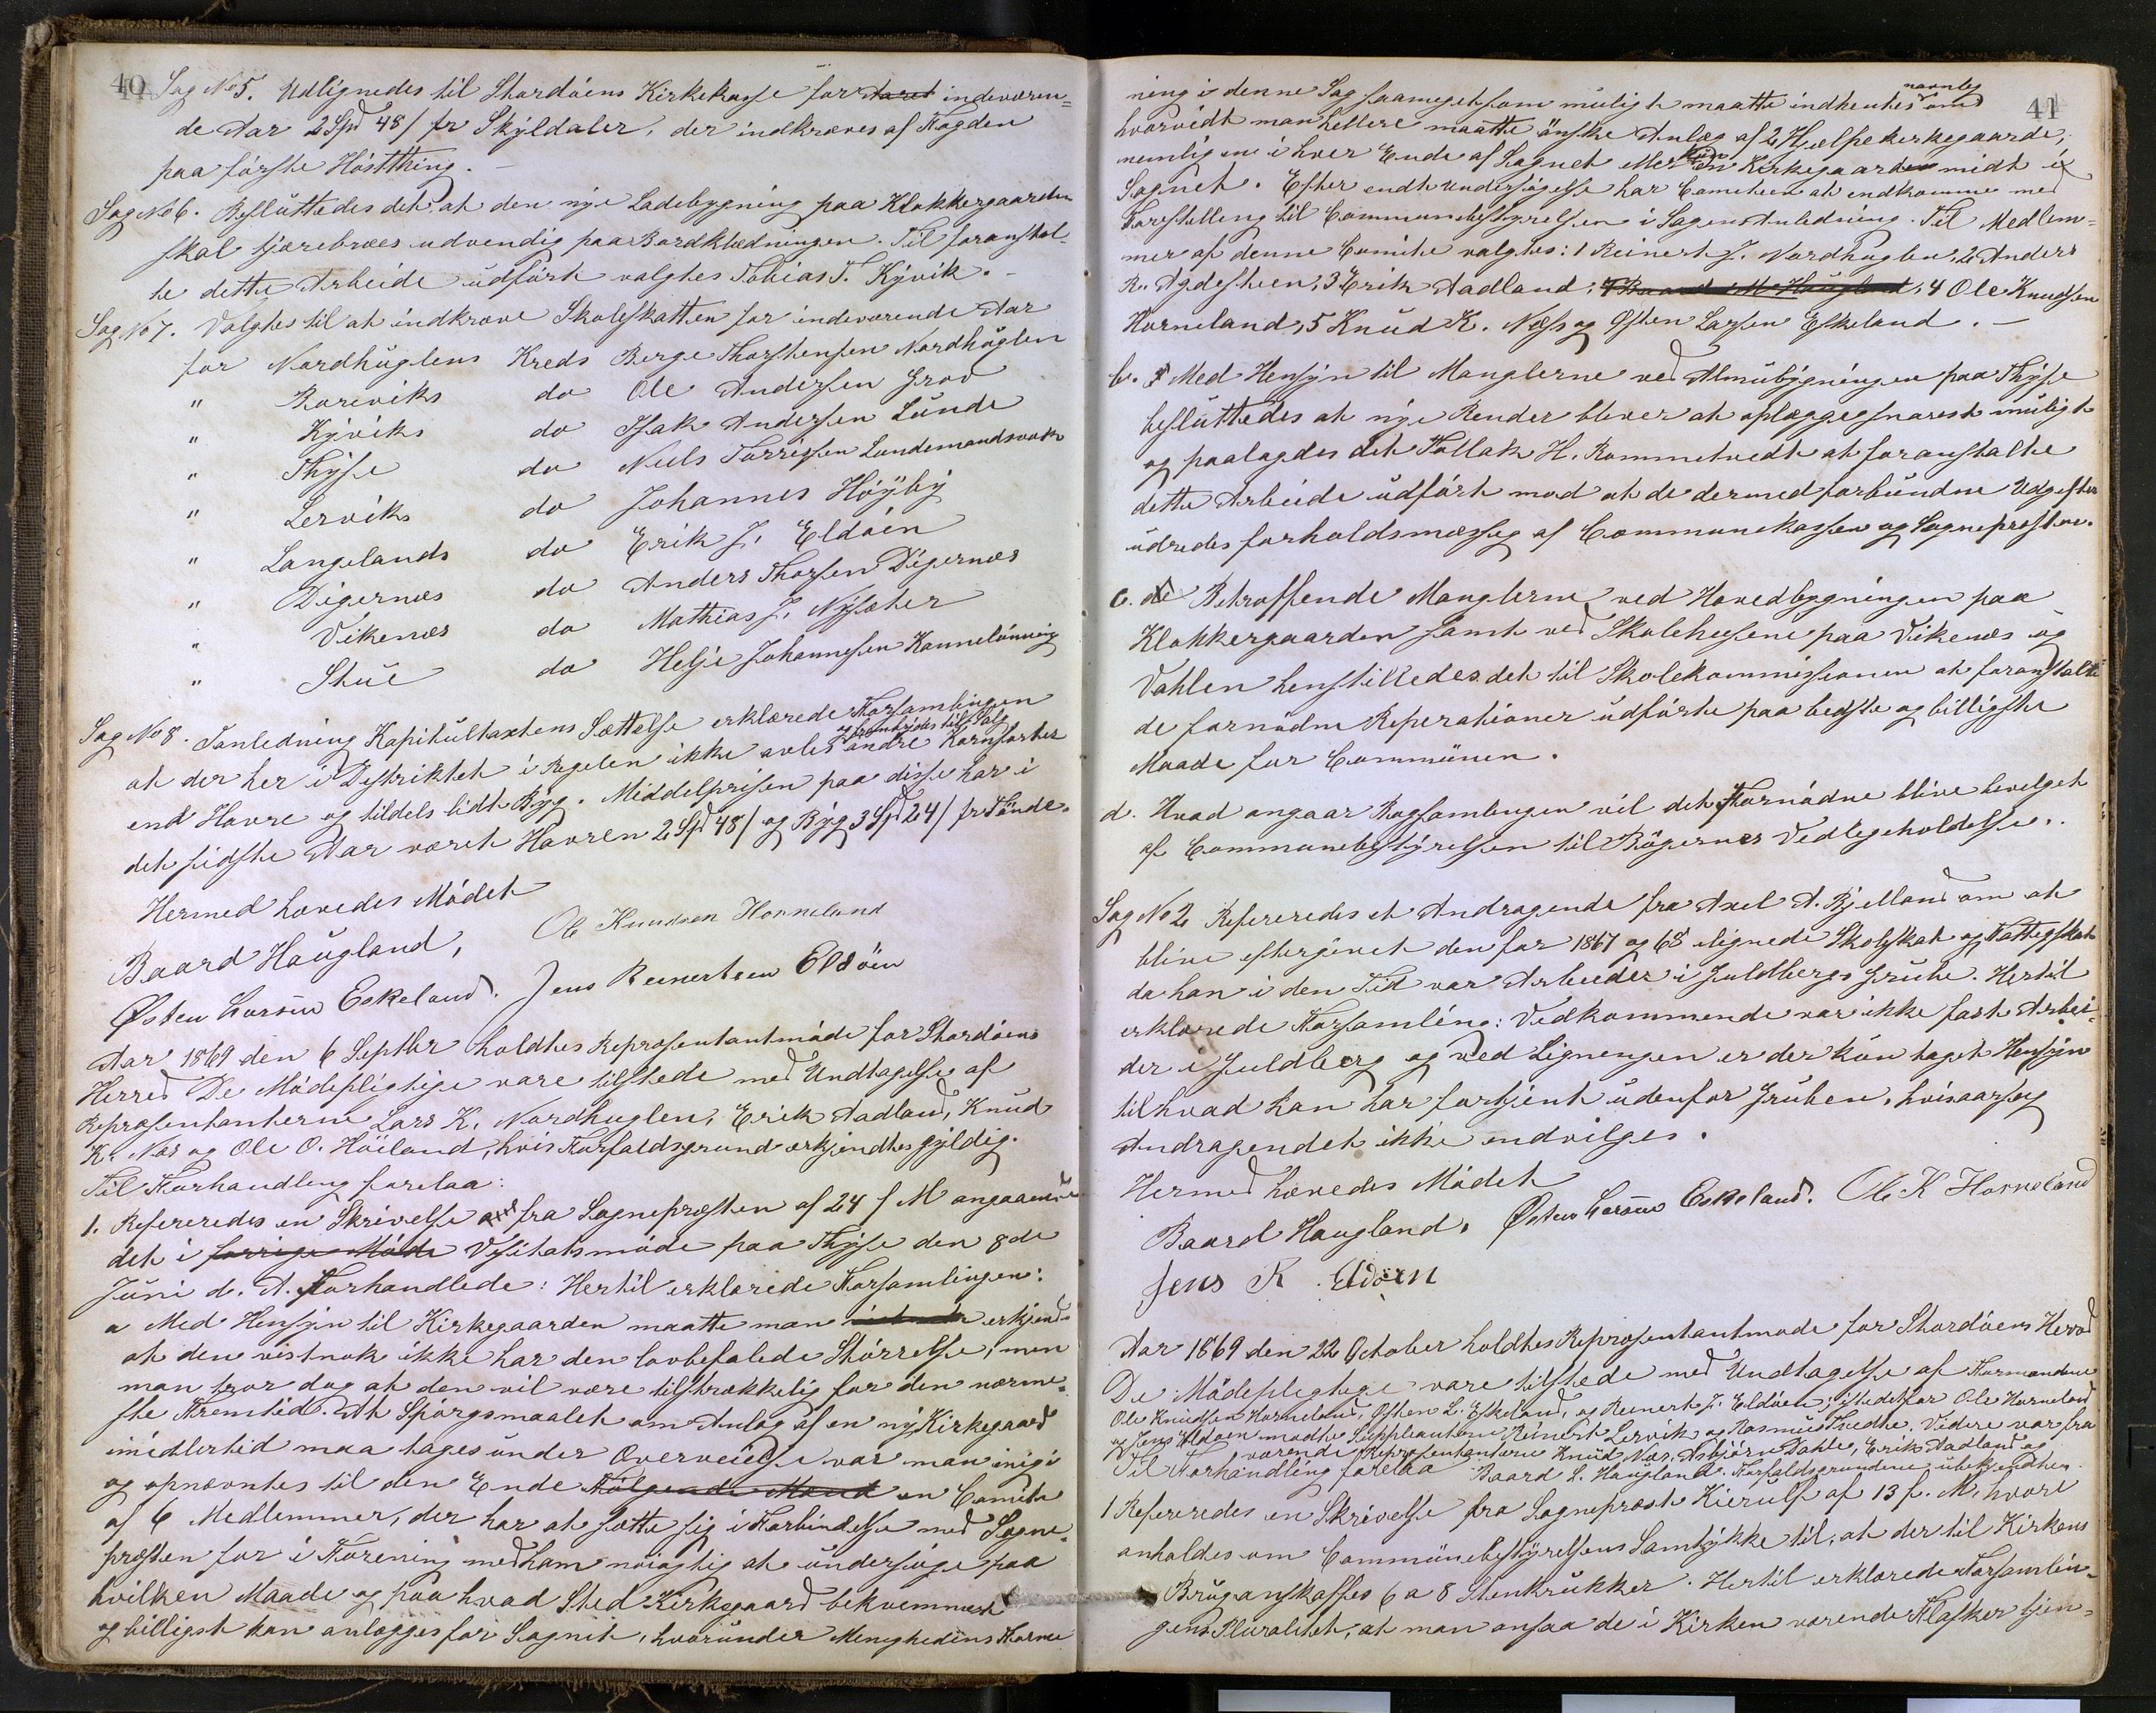 40
Sag No 5. Udlignedes til Stordöens Kirkekasse for Aaret indeværen=
de Aar 2 Spd 48/ pr Skyldaler, der indkræves af Fogden
paa förste Höstthing. —
Sag No 6. Besluttedes det at den nye Ladebygning paa Klokkergaarden
skal tjærebræes udvendig paa Bordklædningen. Til foranstal-
te dette Arbeide udfört valgtes Tobias T. Kyvik. —
Sag No 7. Valgtes til at indkræve Skoleskatten for indeværende Aar
for Nordhuglens Kreds Berge Thorstensen Nordhuglen
" Roreviks do Ole Andersen Grov
" Kyviks do Isak Andersen Lunde
" Thyse do Niels Torrissen Landemandsvæk
" Lerviks do Johannes Höyby
" Langelands do Erik J. Eldöin
" Digernæs do Anders Thorsen Digernæs
" Vikenæs do Mathias J. Nysæter
" Stue do Helje Johannesen Kannelönning
Sag No 8. Ianledning Kapitultaxtens Sættelse erklærede Forsamlingen
og frembydes til Salg
at der her i Destriktet i Regelen ikke avles andre Kornsorter
end Havre og tildels lidt Byg. Middelprisen paa disse har i
det sidste Aar været Havren 2 Spd 48/ og Byg 3 Spd 24/ pr Tönde.
Hermed hævedes Mödet
Baard Haugland, Ole Knudsen Horneland
Østen Larsen Eskeland. Jens Reinertsen Eldöen
Aar 1869 den 6 Septbr holdtes Repræsentantmöde for Stordöens
Herred De Mödepligtige vare tilstede med Undtagelse af
Repræsentanterne Lars K. Nordhuglen, Erik Aadland, Knud
K. Næs og Ole O. Höiland, hvis Forfaldsgrund erkjendtes gyldig.
Til Forhandling forelaa:
1. Refereredes en Skrivelse fra Sognepræsten af 24 f M angaaende
det i forrige Möde Visitatsmöde paa Thyse den 8de
Juni d. A. Forhandlede: Hertil erklærede Forsamlingen:
a Med Hensyn til Kirkegaarden maatte man erkjende
at den vistnok ikke har den lovbefalede Störrelse, men
man tror dog at den vil være tilstrækkelig for den nærme=
ste Fremtid. At Spörgsmaalet om Anlæg af en ny Kirkegaard
imidlertid maa tages under Overveielse var man enig i
og opnævntes til den Ende Fölgende Mænd en Comite
af 6 Medlemmer, der har at sætte sig i Forbindelse med Sogne-
præsten for i Forening med ham nöiagtig at undersöge paa
hvilken Maade og paa hvad Sted Kirkegaard bekvemmest
og billigst kan anlægges for Sognet, hvorunder Menighedens Forme
41
ning i denne Sag saameget som muligt maatte indhentes navnlig om
hvorvidt man hellere maatte önske Anlæg af 2 Hjælpekirkegaarde,
nemlig en i hver Ende af Sognet Mer kun en Kirkegaarden midt i
Sognet. Efter endt Undersögelse har Comiteen at indkomme med
Forestelling til Communebestyrelsen i Sagens Anledning. Til Medlem=
mer af denne Comite valgtes: 1 Reinert J. Nordhuglen, 2 Anders
R. Agdesteen, 3 Erik Aadland, 4 Baard M Haugland, 4 Ole Knudsen
Horneland, 5 Knud K. Næss og Østen Larsen Eskeland. —
b. Med Hensyn til Manglerne ved Almubygningen paa Thyse
besluttedes at nye Render bliver at oplægges snarest muligt
og paalagdes det Tollak H. Rommetvedt at foranstalte
dette Arbeide udfört mod at de dermed forbundne Udgifter
udredes forholdsmæssig af Communekassen og Sognepræsten.
c. Betræffende Manglerne ved Hovedbygningen paa
Klokkergaarden samt ved Skolehusene paa Vikenæs og
Vahlen henstilledes det til Skolekommissionen at foranstalte
de fornödne Reperationer udförte paa bedste og billigste
Maade for Communen.
d. Hvad angaar Bogsamlingen vil det Fornödne blive bevilget
af Communebestyrelsen til Bögernes Vedligeholdelse.
Sag No 2 Refereredes et Andragende fra Axel A. Bjelland om at
blive eftergivet den for 1867 og 68 lignede Skolskat og Fattigskat
da han i den Tid var Arbeider i Guldbergs Grube. Hertil
erklærede Forsamling: Vedkommende var ikke fast Arbei-
der i Guldberg og ved Ligningen er der kun taget Hensyn
til hvad han har fortjent udenfor Gruben, hvisaarsag
Andragendet ikke indvilges.
Hermed hævedes Mödet
Baard Haugland, Østen Larsen Eskeland. Ole K Horneland
Jens R Eldöen
Aar 1869 den 22 October holdtes Repræsentantmöde for Stordöens Herred
De Mödepligtige vare tilstede med Undtagelse af Formændene
Ole Knudsen Horneland, Østen L. Eskeland, og Reinert J. Eldöen; istedetfor Ole Horneland
og Jens Eldöen mödte Suppleanterne Reinert Lervik og Rasmus Tvedte. Videre var fra
værende Repræsentanterne Knud Næs, Asbjörn Dahle, Erik Aadland og
Til Forhandling forelaa Baard L. Haugland. Forfaldsgrundene ubekjendte.
1 Refereredes en Skrivelse fra Sognepræst Kierulf af 13 f. M. hvori
anholdes om Communebestyrelsens Samtykke til, at der til Kirkens
Brug anskaffes 6 a 8 Stenkrukker. Hertil erklærede Forsamlin=
gens Pluralitet, at man ansaa de i Kirken værende Flasker tjen=